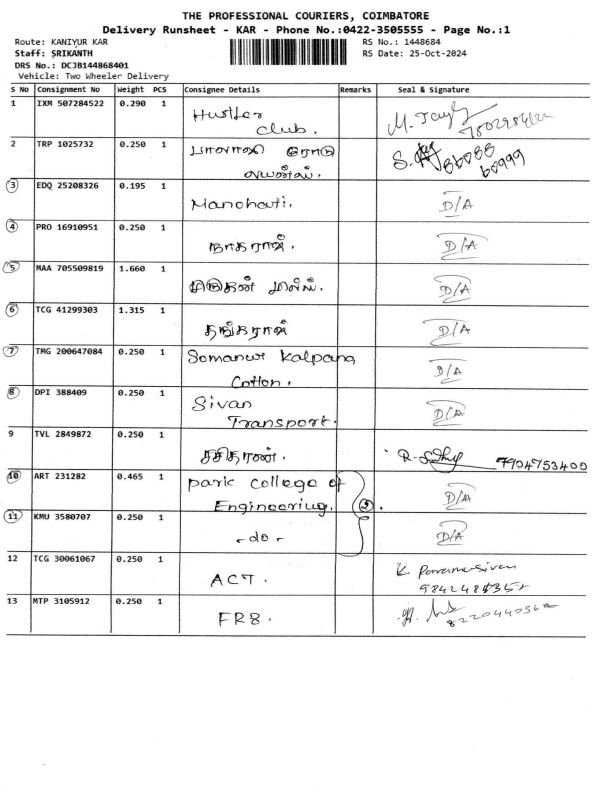 THE PROFESSIONAL COURIERS, COIMBATORE
Delivery Runsheet - KAR - Phone No.:0422-3505555 - Page No.:1
Route: KANIYUR KAR RS No.: 1448684
Staff: SRIKANTH RS Date: 25-Oct-2024
DRS No.: DCJB144868401
Vehicle: Two Wheeler Delivery
S No Consignment No Weight PCS Consignee Details Remarks Seal & Signature
1 IXM 507284522 0.290 1 Hustler
Club.
2 TRP 1025732 0.250 1 ரோடு
S. 86088
60999
3 EDQ 25208326 0.195 1 Manohari. D/A
4 PRO 16910951 0.250 1 நாகராஜ். D/A
5 MAA 705509819 1.660 1 முருகன் மில்ஸ். D/A
6 TCG 41299303 1.315 1 தங்கராஜ் D/A
7 TMG 200647084 0.250 1 Somanur Kalpana D/A
Cotton.
8 DPI 388409 0.250 1 Sivan D/A
Transport.
9 TVL 2849872 0.250 1 சசிதரன். R. 7904753400
10 ART 231282 0.465 1 park college of D/A
Engineering. 2.
11 KMU 3580707 0.250 1 - do - D/A
12 TCG 30061067 0.250 1 ACT. K. Paramasivan
13 MTP 3105912 0.250 1 FR8.